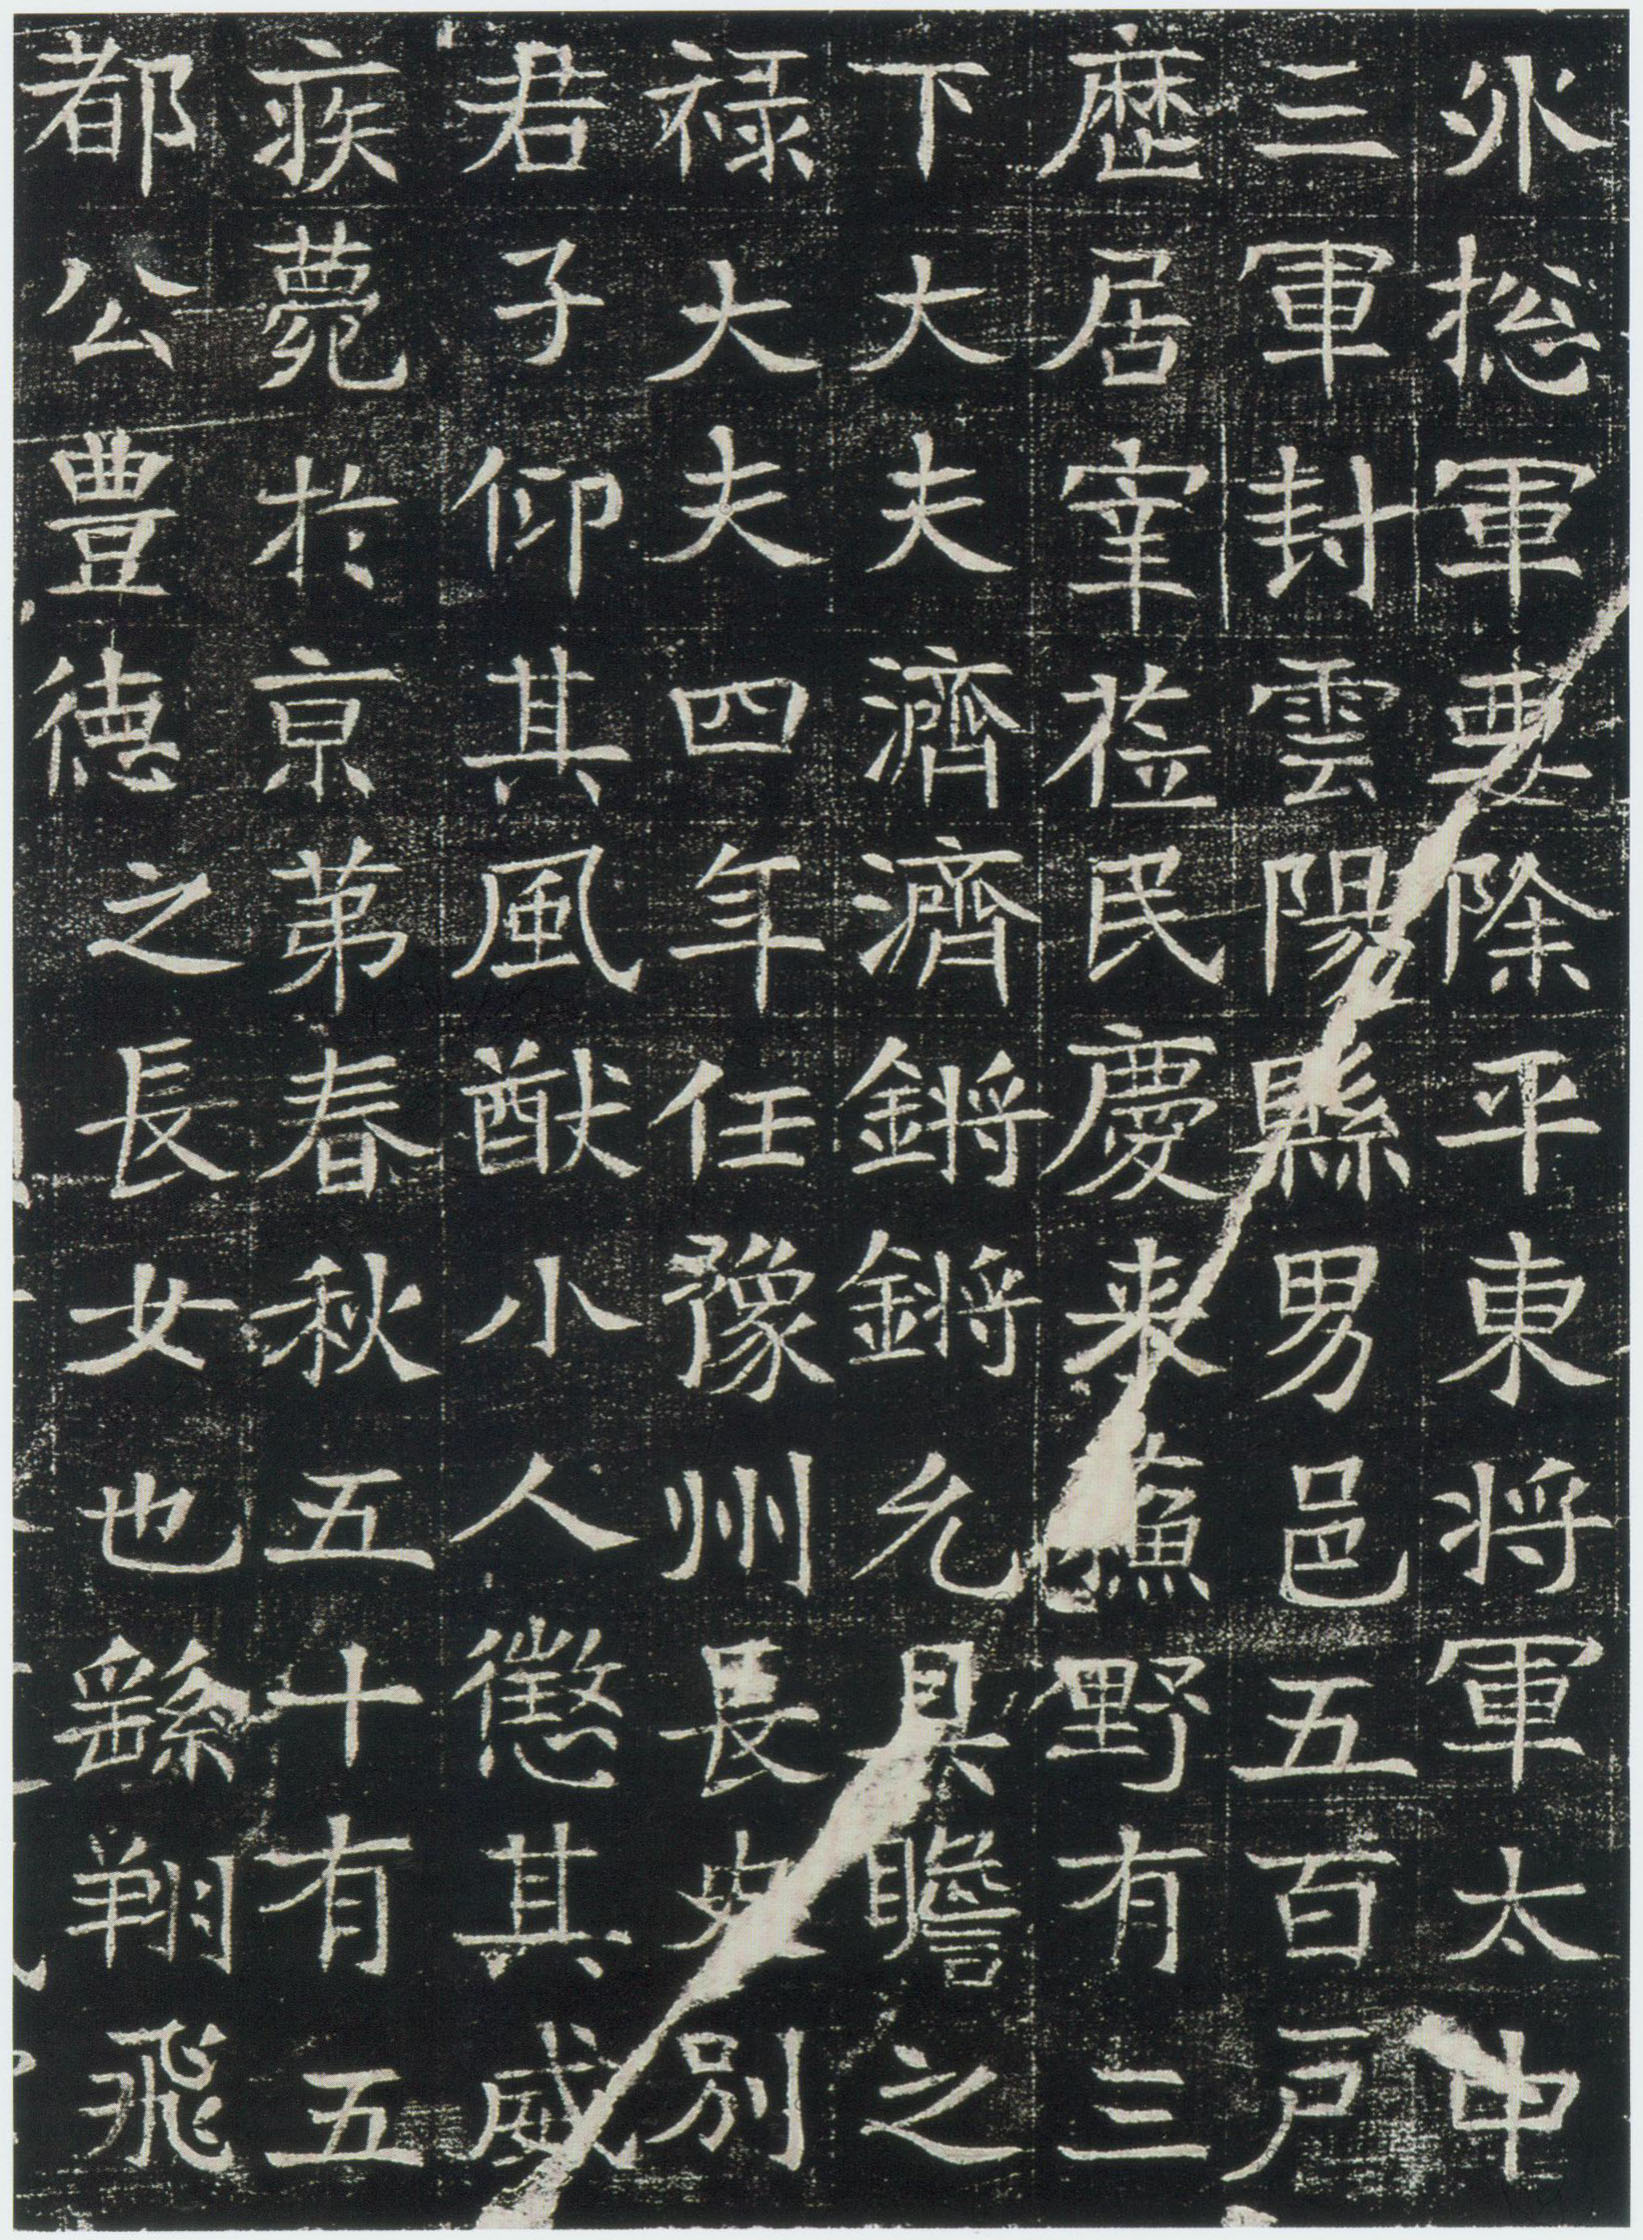 外揔軍要除平東将軍太中
三軍封雲陽縣男邑五百户
歴居宰莅民慶来蘓野有三
下大夫濟濟鏘鏘允具瞻之
禄大夫四年任豫州長史別
君子仰其風猷小人懲其威
疾薨於京苐春秋五十有五
都公豊德之長女也繇翔飛